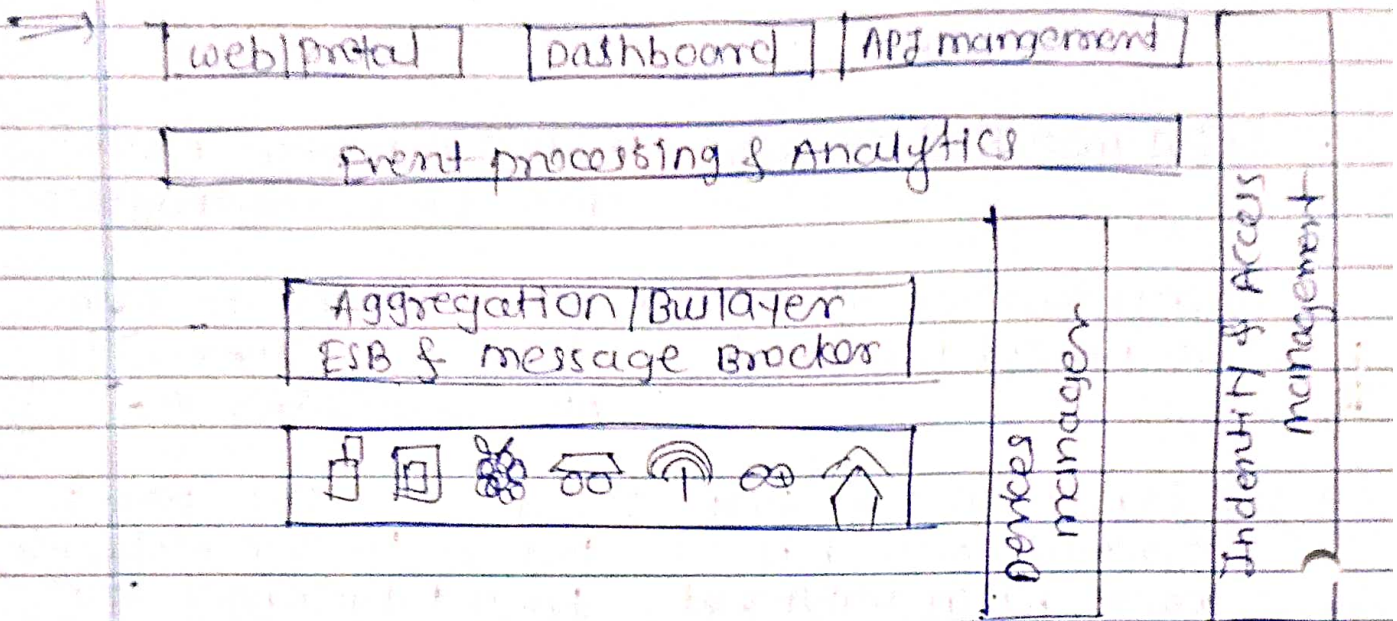 web/protal
Dashboard
API mangement
Event processing & Analytics
Aggregation/Buslayer
ESB & message Brocker
Devices
manager
Indentity & Access
management